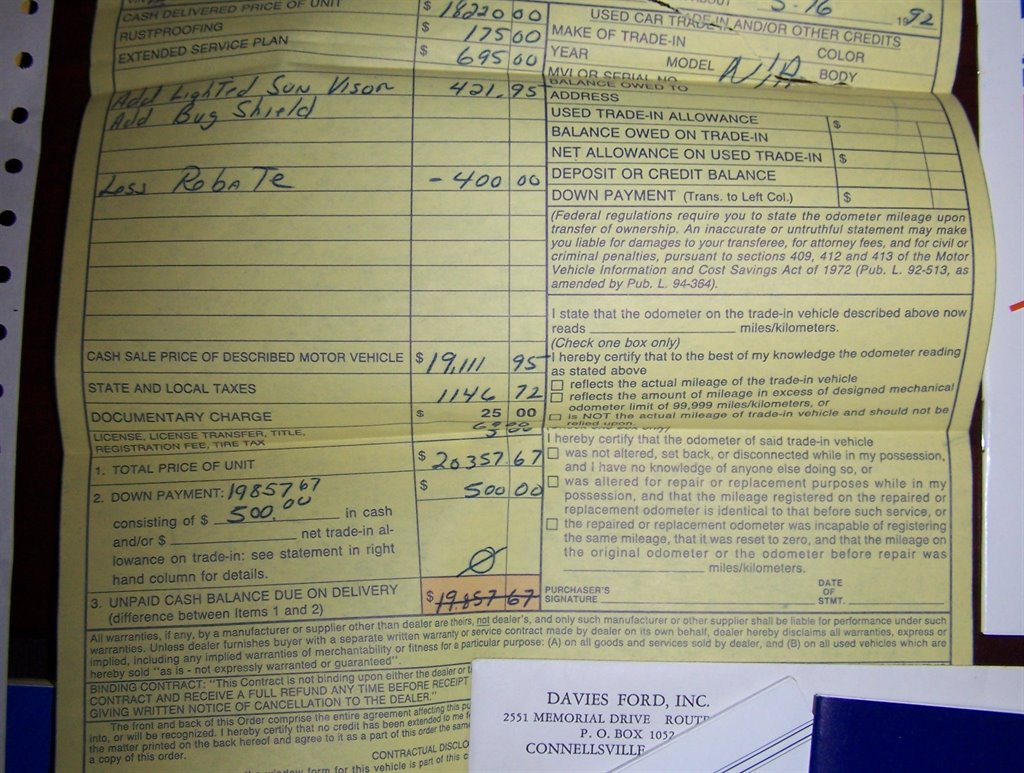 5-16 1992
CASH DELIVERED PRICE OF UNIT $ 18220 00
RUSTPROOFING $ 175 00
EXTENDED SERVICE PLAN $ 695 00
Add Lighted Sun Visor 421.95
Add Bug Shield
Less RebaTe - 400 00
CASH SALE PRICE OF DESCRIBED MOTOR VEHICLE $ 19,111 95
STATE AND LOCAL TAXES 1146 72
DOCUMENTARY CHARGE $ 25 00
LICENSE, LICENSE TRANSFER, TITLE,
REGISTRATION FEE, TIRE TAX 5 00
1. TOTAL PRICE OF UNIT $ 20357.67
2. DOWN PAYMENT: 19857 67 $ 500 00
consisting of $ 500.00 in cash
and/or $ net trade-in al-
lowance on trade-in: see statement in right
hand column for details. Ø
3. UNPAID CASH BALANCE DUE ON DELIVERY $ 19,857 67
(difference between Items 1 and 2)
USED CAR TRADE-IN AND/OR OTHER CREDITS
MAKE OF TRADE-IN
YEAR MODEL N/A COLOR
MVI OR SERIAL NO. BODY
BALANCE OWED TO
ADDRESS
USED TRADE-IN ALLOWANCE $
BALANCE OWED ON TRADE-IN
NET ALLOWANCE ON USED TRADE-IN $
DEPOSIT OR CREDIT BALANCE
DOWN PAYMENT (Trans. to Left Col.) $
(Federal regulations require you to state the odometer mileage upon
transfer of ownership. An inaccurate or untruthful statement may make
you liable for damages to your transferee, for attorney fees, and for civil or
criminal penalties, pursuant to sections 409, 412 and 413 of the Motor
Vehicle Information and Cost Savings Act of 1972 (Pub. L. 92-513, as
amended by Pub. L. 94-364).
I state that the odometer on the trade-in vehicle described above now
reads miles/kilometers.
(Check one box only)
I hereby certify that to the best of my knowledge the odometer reading
as stated above
reflects the actual mileage of the trade-in vehicle
reflects the amount of mileage in excess of designed mechanical
odometer limit of 99,999 miles/kilometers, or
is NOT the actual mileage of trade-in vehicle and should not be
relied upon.
I hereby certify that the odometer of said trade-in vehicle
was not altered, set back, or disconnected while in my possession,
and I have no knowledge of anyone else doing so, or
was altered for repair or replacement purposes while in my
possession, and that the mileage registered on the repaired or
replacement odometer is identical to that before such service, or
the repaired or replacement odometer was incapable of registering
the same mileage, that it was reset to zero, and that the mileage on
the original odometer or the odometer before repair was
miles/kilometers.
PURCHASER'S
SIGNATURE
DATE
OF
STMT.
All warranties, if any, by a manufacturer or supplier other than dealer are theirs, not dealer's, and only such manufacturer or other supplier shall be liable for performance under such
warranties. Unless dealer furnishes buyer with a separate written warranty or service contract made by dealer on its own behalf, dealer hereby disclaims all warranties, express or
implied, including any implied warranties of merchantability or fitness for a particular purpose: (A) on all goods and services sold by dealer, and (B) on all used vehicles which are
hereby sold "as is - not expressly warranted or guaranteed".
BINDING CONTRACT: "This Contract is not binding upon either the dealer or
CONTRACT AND RECEIVE A FULL REFUND ANY TIME BEFORE RECEIPT
GIVING WRITTEN NOTICE OF CANCELLATION TO THE DEALER."
The front and back of this Order comprise the entire agreement affecting this
into, or will be recognized. I hereby certify that no credit has been extended to me
the matter printed on the back hereof and agree to it as a part of this order the same
a copy of this order.
CONTRACTUAL DISCLO
window form for this vehicle is part of this
DAVIES FORD, INC.
2551 MEMORIAL DRIVE ROUT
P. O. BOX 1052
CONNELLSVILLE